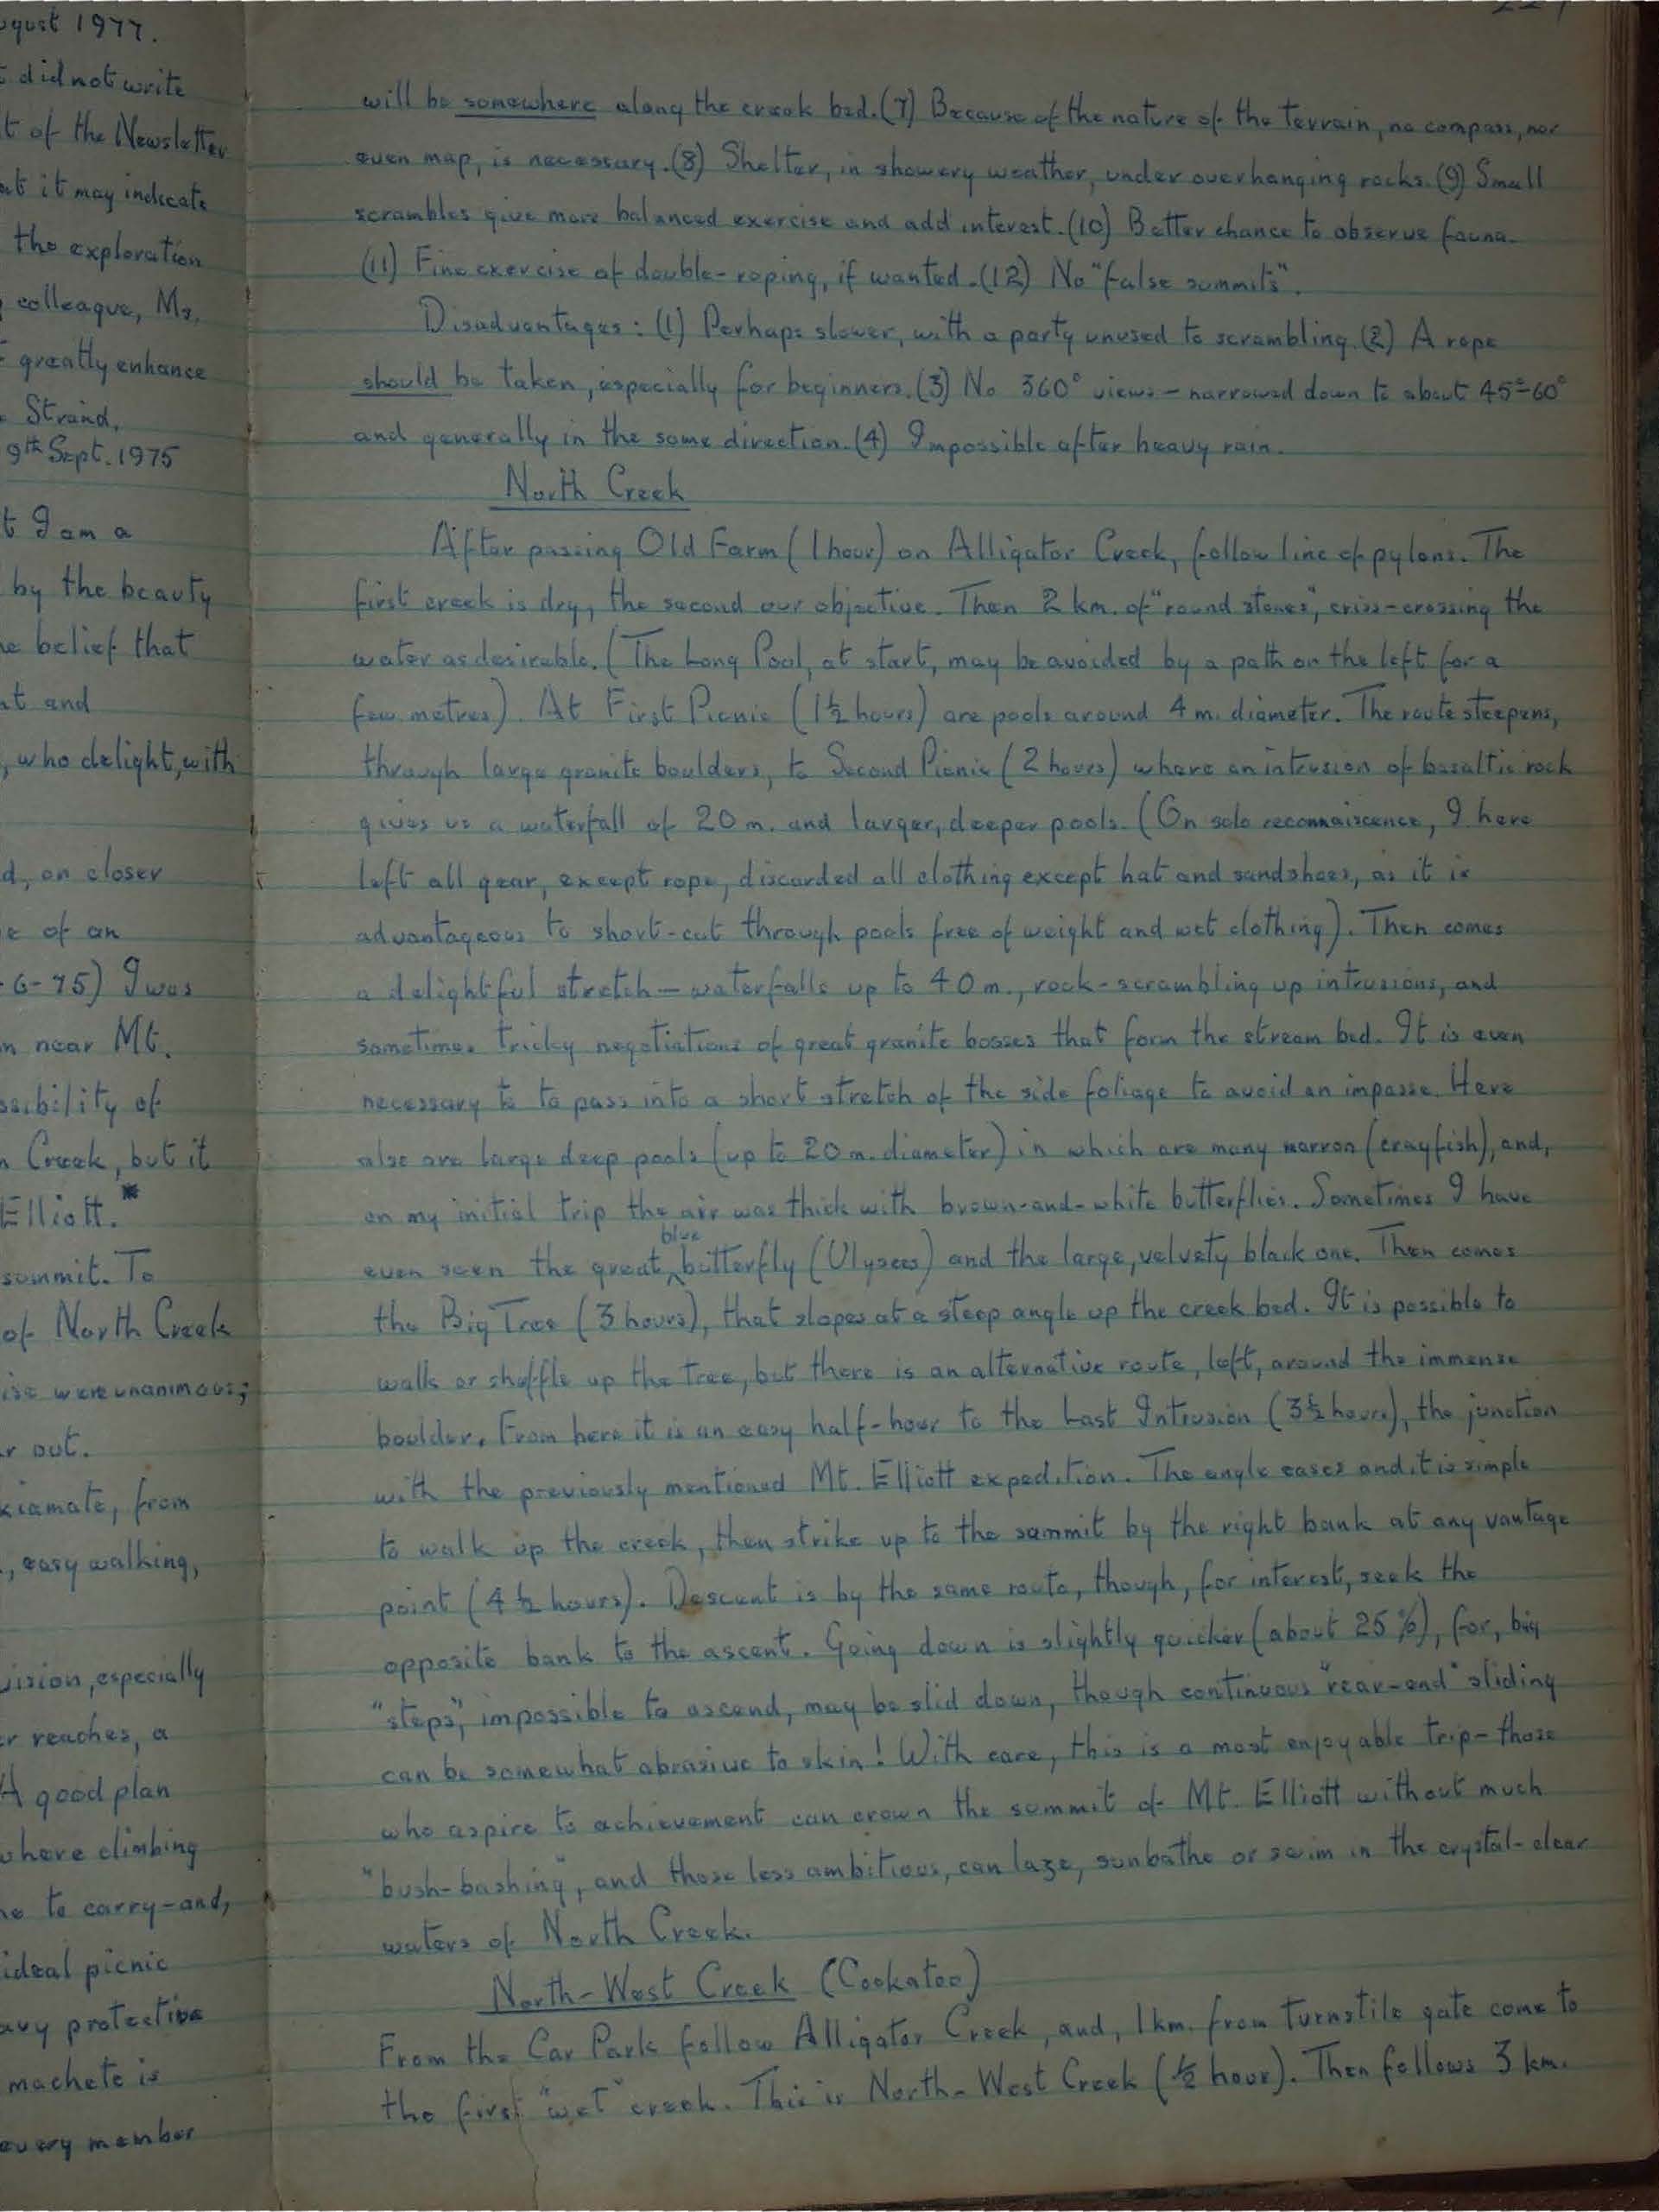 ugust 1977.
did not write
t of the Newsletter
at it may indicate
the exploration
colleague, Ms.
greatly enhance
Strand,
9th Sept. 1975
t I am a
by the beauty
e belief that
nt and
, who delight, with
d, on closer
e of an
-6-75) I was
n near Mt.
ssibility of
n Creek, but it
Elliott.*
summit. To
of North Creek
ise were unanimous;
r out.
kiamate, from
, easy walking,
vision, especially
er reaches, a
A good plan
where climbing
ne to carry - and,
ideal picnic
avy protective
machete is
every member
will be somewhere along the creek bed. (7) Because of the nature of the terrain, no compass, nor
even map, is necessary. (8) Shelter, in showery weather, under overhanging rocks. (9) Small
scrambles give more balanced exercise and add interest. (10) Better chance to observe fauna.
(11) Fine exercise of double-roping, if wanted. (12) No "false summits".
Disadvantages: (1) Perhaps slower, with a party unused to scrambling. (2) A rope
should be taken, especially for beginners. (3) No 360° views - narrowed down to about 45°-60°
and generally in the same direction. (4) Impossible after heavy rain.
North Creek
After passing Old Farm (1 hour) on Alligator Creek, follow line of pylons. The
first creek is dry, the second our objective. Then 2 km. of "round stones", criss-crossing the
water as desirable. (The Long Pool, at start, may be avoided by a path on the left for a
few metres). At First Picnic (1½ hours) are pools around 4 m. diameter. The route steepens,
through large granite boulders, to Second Picnic (2 hours) where an intrusion of basaltic rock
gives us a waterfall of 20 m. and larger, deeper pools. (On solo reconnaiscence, I here
left all gear, except rope, discarded all clothing except hat and sandshoes, as it is
advantageous to short-cut through pools free of weight and wet clothing). Then comes
a delightful stretch - waterfalls up to 40 m., rock-scrambling up intrusions, and
sometimes tricky negotiations of great granite bosses that form the stream bed. It is even
necessary to to pass into a short stretch of the side foliage to avoid an impasse. Here
also are large deep pools (up to 20 m. diameter) in which are many marron (crayfish), and,
on my initial trip the air was thick with brown-and-white butterflies. Sometimes I have
even seen the great blue butterfly (Ulysees) and the large, velvety black one. Then comes
the Big Tree (3 hours), that slopes at a steep angle up the creek bed. It is possible to
walk or shuffle up the tree, but there is an alternative route, left, around the immense
boulder. From here it is an easy half-hour to the Last Intrusion (3½ hours), the junction
with the previously mentioned Mt. Elliott expedition. The angle eases and it is simple
to walk up the creek, then strike up to the summit by the right bank at any vantage
point (4½ hours). Descent is by the same route, though, for interest, seek the
opposite bank to the ascent. Going down is slightly quicker (about 25%), for, big
"steps", impossible to ascend, may be slid down, though continuous "rear-end" sliding
can be somewhat abrasive to skin! With care, this is a most enjoyable trip - those
who aspire to achievement can crown the summit of Mt. Elliott without much
"bush-bashing", and those less ambitious, can laze, sunbathe or swim in the crystal-clear
waters of North Creek.
North-West Creek (Cockatoo)
From the Car Park follow Alligator Creek, and, 1 km. from turnstile gate come to
the first "wet" creek. This is North-West Creek (½ hour). Then follows 3 km.